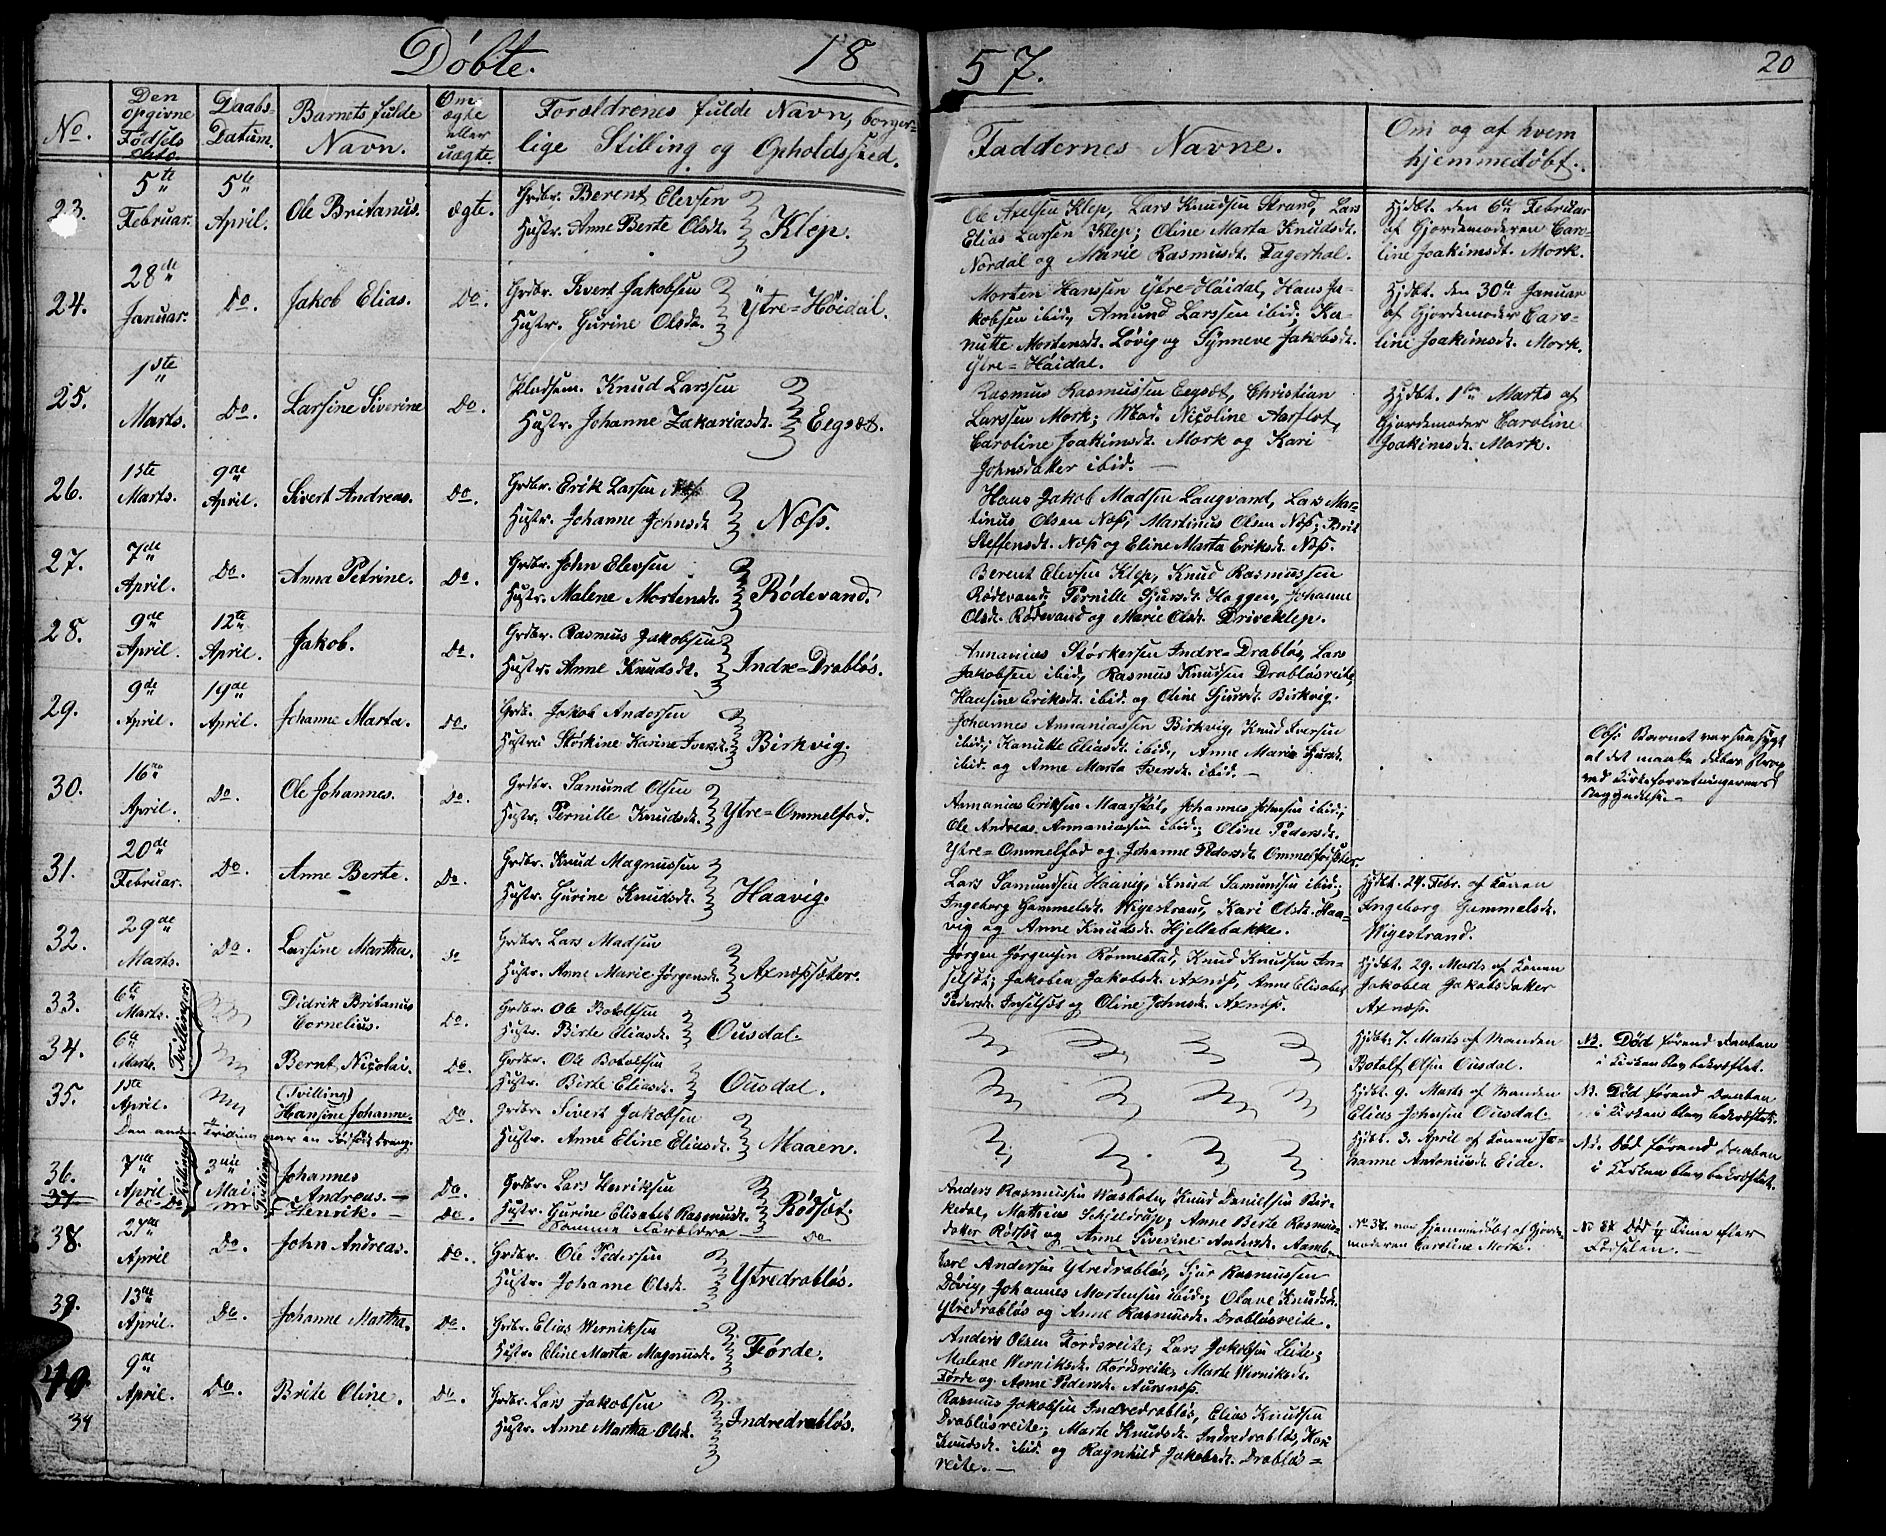 Døbte. 18
57.
20
No.
Den opgivne Fødsels dato.
Daabs-Datum.
Barnets fulde Navn.
Om ægte eller uægte.
Forældrenes fulde Navn, borger-
lige Stilling og Opholdssted.
Faddernes Navne.
Om og af hvem hjemmedøbt.
23. 5te Februar. 5te April. Ole Britanus. ægte.
Grdbr. Berent Elevsen
Hustr. Anne Berte Olsdt. Klep.
Ole Axelsen Klep, Lars Knudsen Strand, Lars
Elias Larsen Klep; Oline Marta Knudsdt.
Nordal og Marie Rasmusdt. Fagerhol.
Hjdbt. den 6te Februar
af Gjordemoderen Caro-
line Joakimsdt. Mork.
24. 28de Januar. Do. Jakob Elias. Do.
Grdbr. Sivert Jakobsen
Hustr. Gurine Olsdt. Ytre=Höidal.
Morten Hanssen Ytre=Höidal, Hans Ja-
kobsen ibid, Amund Larssen ibid; Ka-
nutte Mortensdt. Løvig og Synneve Jakobsdt.
Ytre=Höidal.
Hjdbt. den 30te Januar
af Gjordemoder Caro-
line Joakimsdt. Mork.
25. 1ste Marts. Do. Larsine Siverine Do.
Pladsm. Knud Larssen
Hustr. Johanne Zakariasdt. Eegsæt.
Rasmus Rasmussen Eegsæt, Christian
Larssen Mork; Mad. Nicoline Aarflot,
Caroline Joakimsdt. Mork og Kari
Johnsdatter ibid.
Hjdbt. 1ste Marts af
Gjordemoder Caroline
Joakimsdt. Mork.
26. 1ste Marts. 9de April. Sivert Andreas. Do.
Grdbr. Erik Larsen
Hustr. Johanne Johnsdt Næss.
Hans Jakob Madsen Langvand, Lars Mar-
tinus Olsen Næs, Martinus Olsen Næs; Brit
Steffensdt. Næs og Eline Marta Eriksdt. Næs.
27. 7de April. Do. Anna Petrine. Do.
Grdbr. John Elevsen
Hustr. Malene Mortensdt. Rødevand.
Berent Elevsen Klep, Knud Rasmussen
Rødevand; Pernille Sjursdt. Haggen, Johanne
Olsdt. Rødevand og Marie Olsdt. Driveklep.
28. 9de April. 12te April. Jakob. Do.
Grdbr. Rasmus Jakobsen
Hustr. Anne Knudsdt. Indre=Drabløs.
Annanias Størkersen Indre=Drabløs, Lars
Jakobsen ibid, Rasmus Knudsen Drabløsreite,
Hansine Eriksdt. ibid. og Oline Sjursdt. Birkvig.
29. 9de April. 19de April. Johanne Marta. Do.
Grdb. Jakob Andersen
Hustru Størkine Karine Iversdt. Birkvig.
Johannes Annaniassen Birkvig, Knud Iversen
ibid; Kanutte Eliasdt. ibid, Anne Marie Sjursdt.
ibid. og Anne Marta Iversdt. ibid.
Obs: Barnet var saa sygt
at det maatte døbes strax
ved Kirkeforretningernes
Begyndelse.
30. 16de April. Do. Ole Johannes. Do.
Grdbr. Samund Olsen
Hustr. Pernille Knudsdt. Ytre=Ommelfod.
Annanias Eriksen Maarstøl, Johannes Johnsen ibid;
Ole Andreas Annaniassen ibid; Oline Pedersdt.
Ytre=Ommelfod og Johanne Pedersdt.
31. 20de Februar. Do. Anne Berte. Do.
Grdbr. Knud Magnussen
Hustr. Gurine Knudsdt. Haavig.
Lars Samundsen Haavig, Knud Samundsen ibid;
Ingeborg Gammelsdt. Wigestrand, Kari Olsdt. Haa-
vig og Anne Knudsdt. Hjellebakke.
Hjdbt. 24. Febr. af Konen
Ingeborg Gammelsdt.
Wigestrand.
32. 29de Marts. Do. Larsine Martha. Do
Grdbr. Lars Madsen
Hustr. Anne Marie Jörgensdt. Axnæssæter.
Jørgen Jørgensen Rönnestad, Knud Knudsen In-
selset; Jakobea Jakobsdt. Axnæs, Anne Elisabet
Pedersdt. Inselset og Oline Johnsdt. Axnæs.
Hjdbt. 29. Marts af Konen
Jakobea Jakobsdatter
Axnæs.
33. 6te Marts. Didrik Britanus
Cornelius. Do.
Tvillinger
Grdbr. Ole Botolfsen
Hustr. Birte Eliasdt. Ousdal.
Hjdbt. 7. Marts af Manden
Botolf Olsen Ousdal.
NB. Død førend Daaben
i Kirken blev bekræftet.
34. 6te Marts. Bernt Nicolai. Do.
Grdbr. Ole Botolfsen
Hustr. Birte Eliasdt. Ousdal.
Hjdbt. 9. Marts af Manden
Elias Johnsen Ousdal.
NB. Død førend Daaben
i Kirken blev bekræftet.
35. 1ste April. (Tvilling)
Hansine Johanne. Do.
Den anden Tvilling var en dødfødt Dreng.
Grdbr. Sivert Jakobsen
Hustr. Anne Eline Eliasdt. Maaen.
Hjdbt. 3. April af Konen Jo-
hanne Antoniusdt. Eide.
NB. Død førend Daaben
i Kirken blev bekræftet.
36. 7de April 3die Mai Johannes
Andreas. Do.
37 Do Henrik. Do.
Tvillinger Tvillinger
Grdbr. Lars Henriksen
Hustr. Gurine Elisabet Rasmusdt. Rødsæt.
Samme Forældre Do
Anders Rasmussen Waskolen, Knud Danielsen Bir-
kedal, Mathias Schjeldrup; Anne Berte Rasmus-
datter Rødset og Anne Siverine Andersdt.
No 37. var hjemmedøbt af Gjorde-
moderen Caroline Mork.
No 37 Død ¼ Time efter
Fødselen.
38. 27de April Do. John Andreas. Do.
Grdbr. Ole Pedersen
Hustr. Johanne Olsdt. Ytredrabløs.
Carl Andersen Ytredrabløs, Sjur Rasmussen
Døvig, Johannes Mortensen ibid; Olave Knudsdt.
Ytredrabløs og Anne Rasmusdt. Drabløsreite.
39. 13de April. Do. Johanne Martha. Do.
Grdbr. Elias Werniksen
Hustr. Eline Marta Magnusdt. Førde.
Anders Olsen Fördsreite, Lars Jakobsen Leite;
Malene Werniksdt. Fördsreite, Marte Werniksdt.
Förde og Anne Pedersdt. Aursnæs.
40 9de April. Do. Brite Oline. Do.
34
Grdbr. Lars Jakobsen
Hustr. Anne Martha Olsdt. Indredrabløs.
Rasmus Jakobsen Indredrabløs, Elias Knudsen
Drabløsreite; Marte Knudsdt. Indredrabløs, Kari
Knudsdt. ibid. og Ragnhild Jakobsdt. Drabløs=
reite.